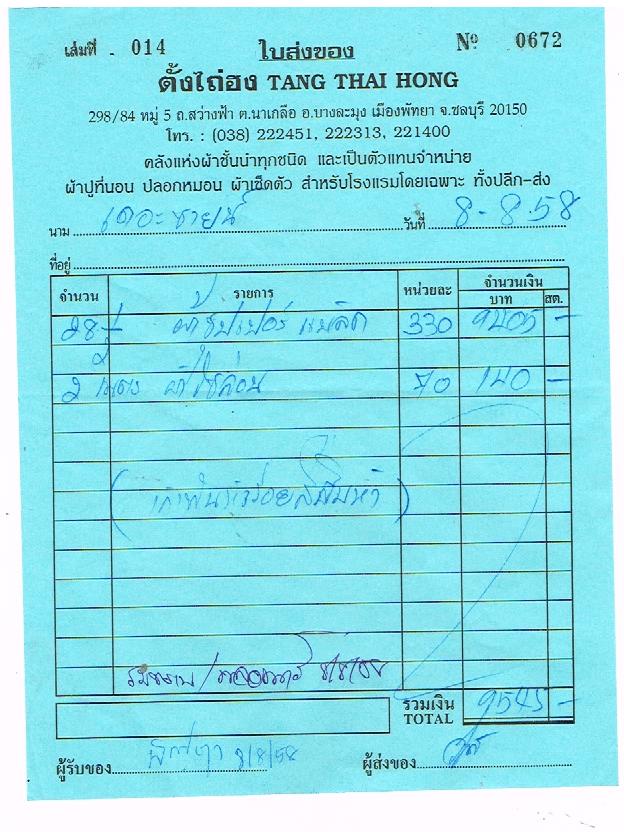 เล่มที่ 014 ใบส่งของ Nº 0672
ตั้งไถ่ฮง TANG THAI HONG
298/84 หมู่ 5 ถ.สว่างฟ้า ต.นาเกลือ อ.บางละมุง เมืองพัทยา จ.ชลบุรี 20150
โทร. : (038) 222451, 222313, 221400
คลังแห่งผ้าชั้นนำทุกชนิด และเป็นตัวแทนจำหน่าย
ผ้าปูที่นอน ปลอกหมอน ผ้าเช็ดตัว สำหรับโรงแรมโดยเฉพาะ ทั้งปลีก-ส่ง
นาม เดอะซายน์ วันที่ 8-8-58
ที่อยู่
จำนวน รายการ หน่วยละ จำนวนเงิน
บาท สต.
330 9405 -
2 เมตร 70 140 -
(เก้าพันห้าร้อยสี่สิบห้า)
รวมเงิน 9545 -
TOTAL
ผู้รับของ 8/8/58 ผู้ส่งของ